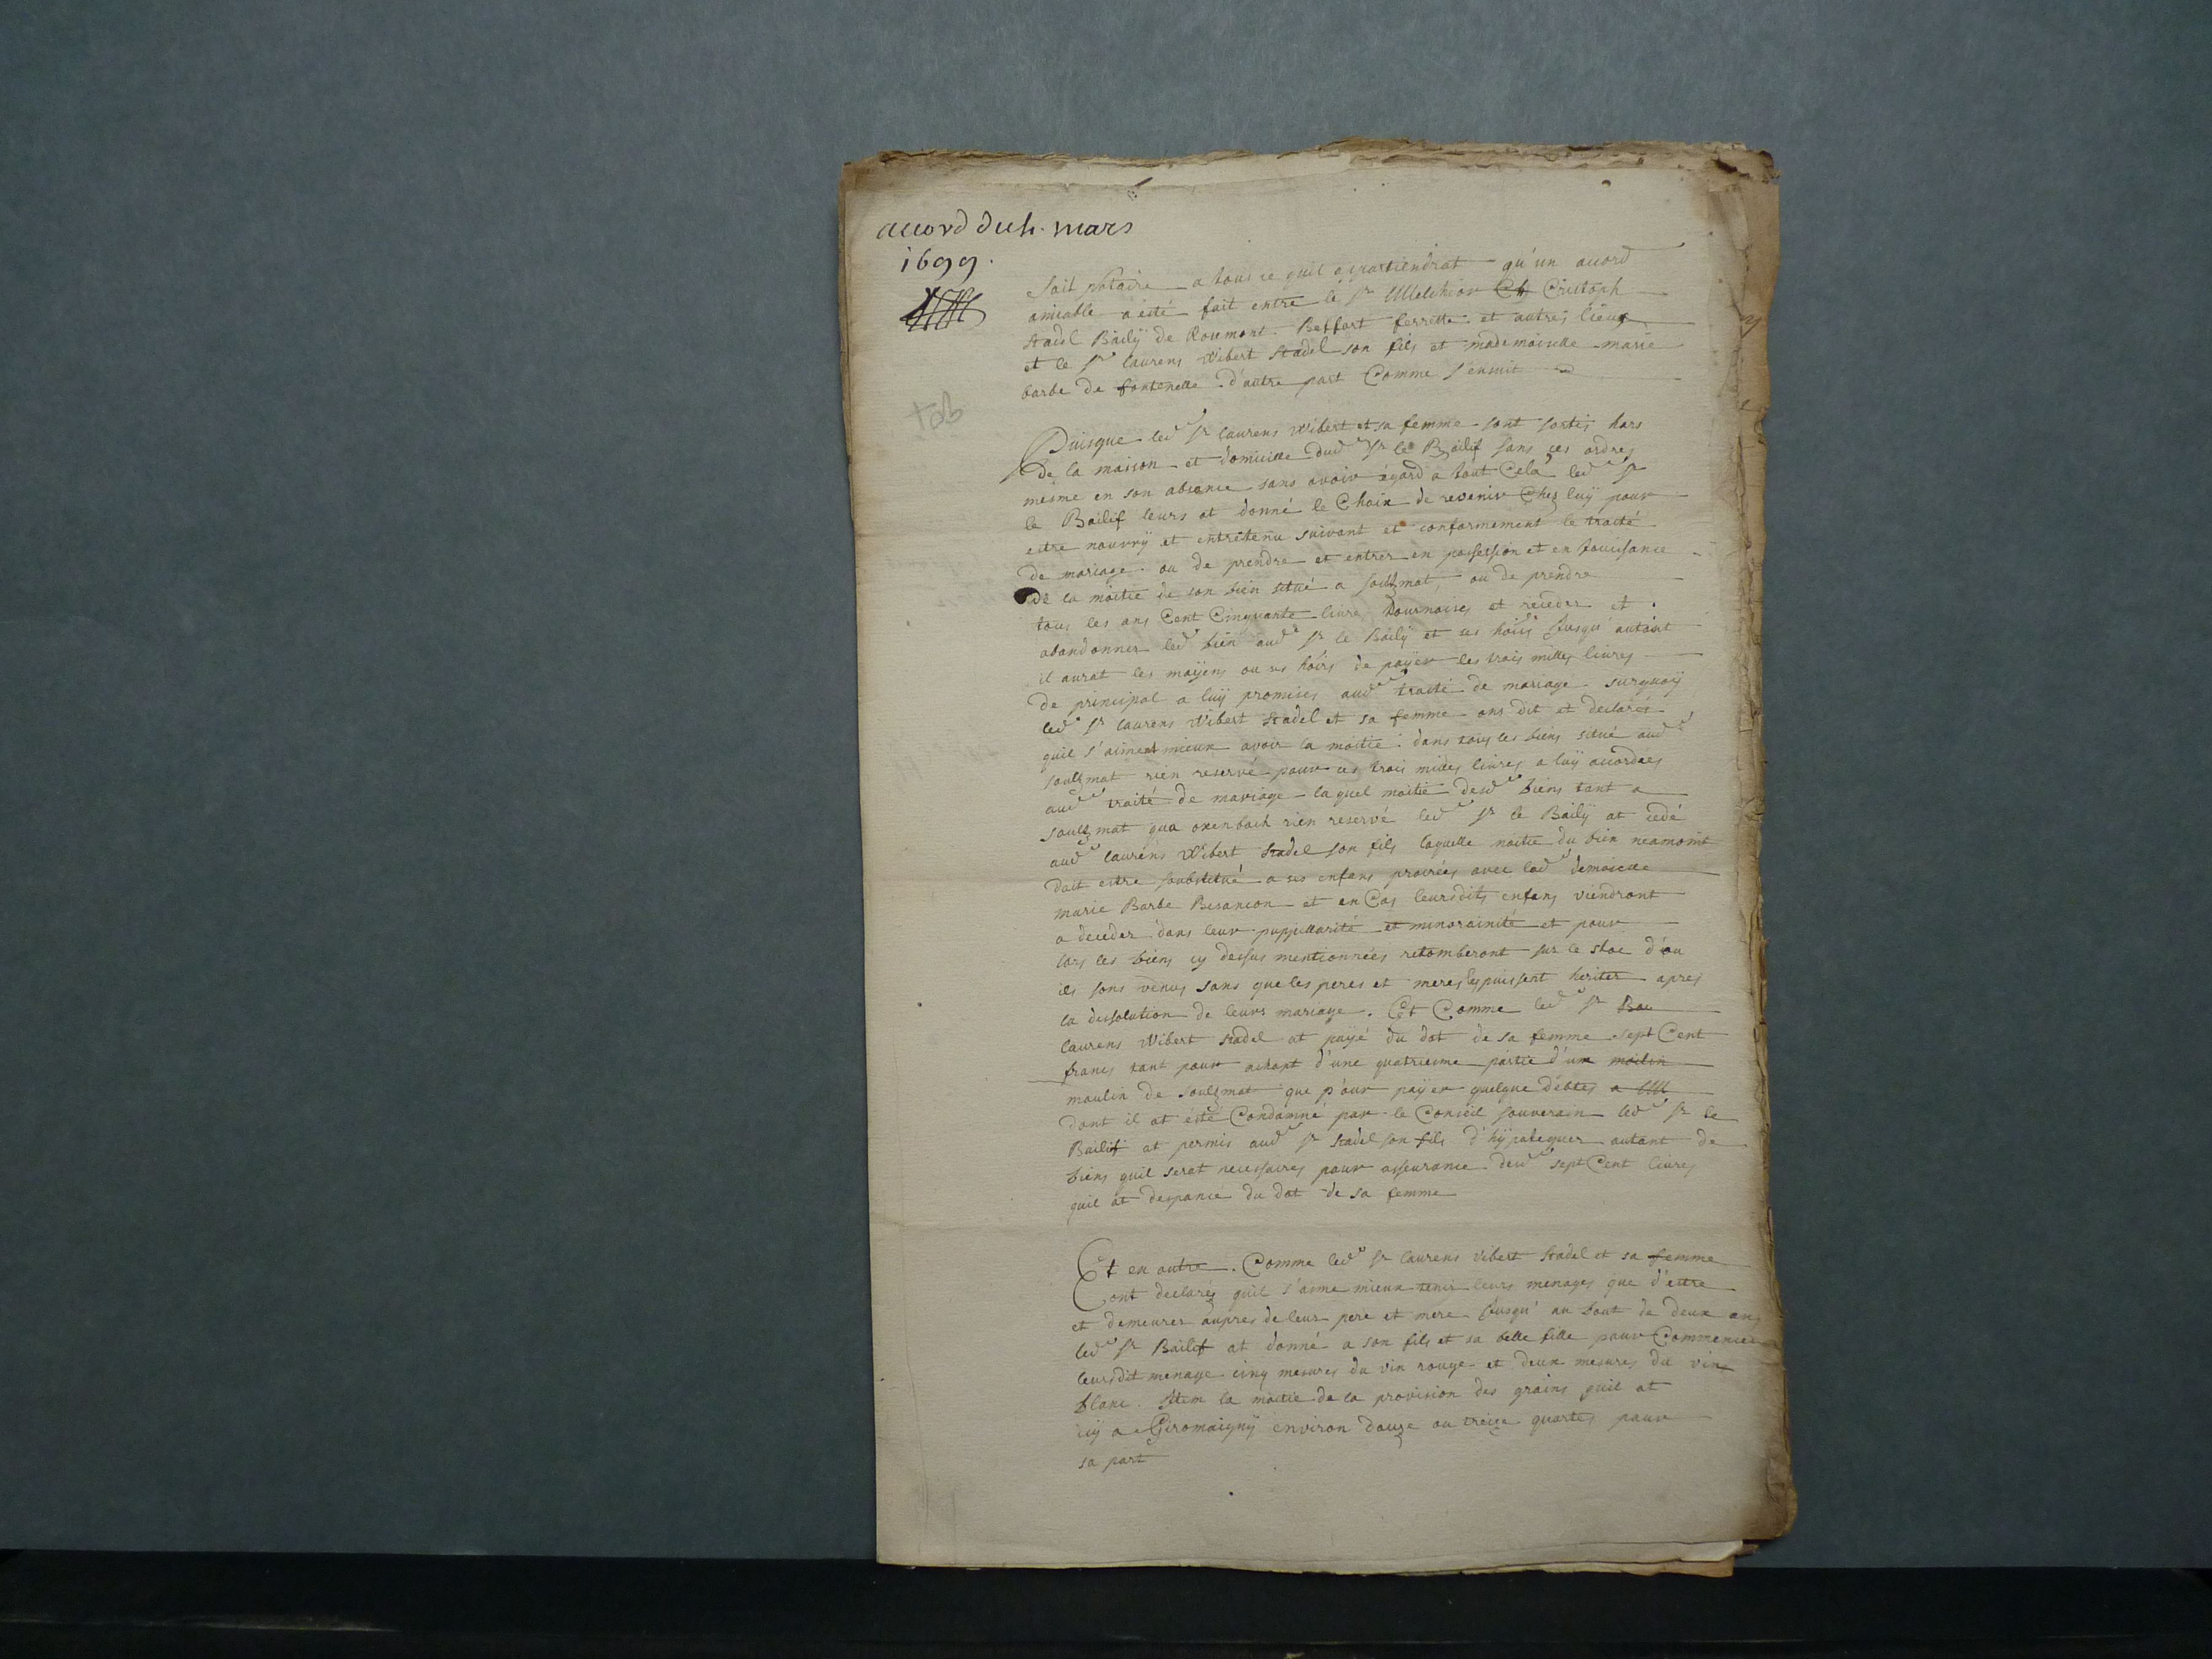 accord du 4. mars
1699.
Soit Notaire a tous ce quil appartiendrat qu'un accord
amiable a esté fait entre le Sr Melchior Ch Cristoph
Stadel Baily de Roumont. Beffort ferrette et autres lieux
et le Sr laurens Wibert Stadel son fils et mademoiselle marie
barbe de fontenelle d'autre part Comme s'ensuit
tob
Puisque led Sr laurens Wibert et sa femme sont sortis hors
de la maison et domicille dud Sr le Bailif sans ces ordres
mesme en son absence sans avoir égard a tout Cela led Sr
le Bailif leurs at donné le Choix de revenir Chez luÿ pour
estre nourrÿ et entretenu suivant et conformement le traité
de mariage. ou de prendre et entrer en possession et en Jouissance
de la moitie de son bien situé a soulzmat, ou de prendre
tous les ans Cent Cinquante livre tournoises et receder et
abandonner led bien aud Sr le Bailÿ et ses hoirs Jusqu'autant
il aurat les moÿens ou ses hoirs de paÿer les trois milles livres
de principal a luÿ promises aud traité de mariage surquoÿ
led Sr laurens Wibert Stadel et sa femme ons dit et declarés
quil s'aiment mieux avoir la moitie dans tous les biens situé aud
soultzmat rien reservé pour ces trois milles livres a luÿ accordées
aud traité de mariage laquel moitie desd biens tant a
soultzmat qua oxenbach rien reservé led Sr le Bailÿ at cedé
aud laurens Wibert Stadel son fils laquelle moitie du bien neamoint
doit estre soubstitué a ses enfans procréés avec lad demoiselle
marie Barbe Besancon et en Cas leursdits enfans viendront
a deceder dans leur puppillarité et minorainité et pour
lors les biens cy dessus mentionnées retomberont sur le stoc d'ou
ils sons venus sans que les peres et meres les puissent heriter apres
la dessolution de leurs mariage. Et Comme led Sr Bai
laurens Wibert Stadel at paÿé du dot de sa femme sept Cent
francs tant pour achapt d'une quatriesme partie d'un moilin
moulin de soultzmat que pour paÿer quelque debtes a M
dont il at esté Condamné par le Conseil souverain led Sr le
Bailif at permis aud Sr Stadel son fils d'hÿpotequer autant de
biens quil serat necessaires pour asseurance desd sept Cent livres
quil at despancé du dot de sa femme
Et en outre. Comme led Sr laurens Vibert Stadel et sa femme
ont declarés quil s'aime mieux tenir leurs menages que d'estre
et demeurer aupres de leur pere et mere Jusqu'au bout de deux ans
led Sr Bailif at donné a son fils et sa belle fille pour Commencer
leursdit menage cinq mesures du vin rouge et deux mesures du vin
blanc. Item la moitie de la provision des grains quil at
icÿ a Giromaignÿ environ douze ou treize quartes pour
sa part